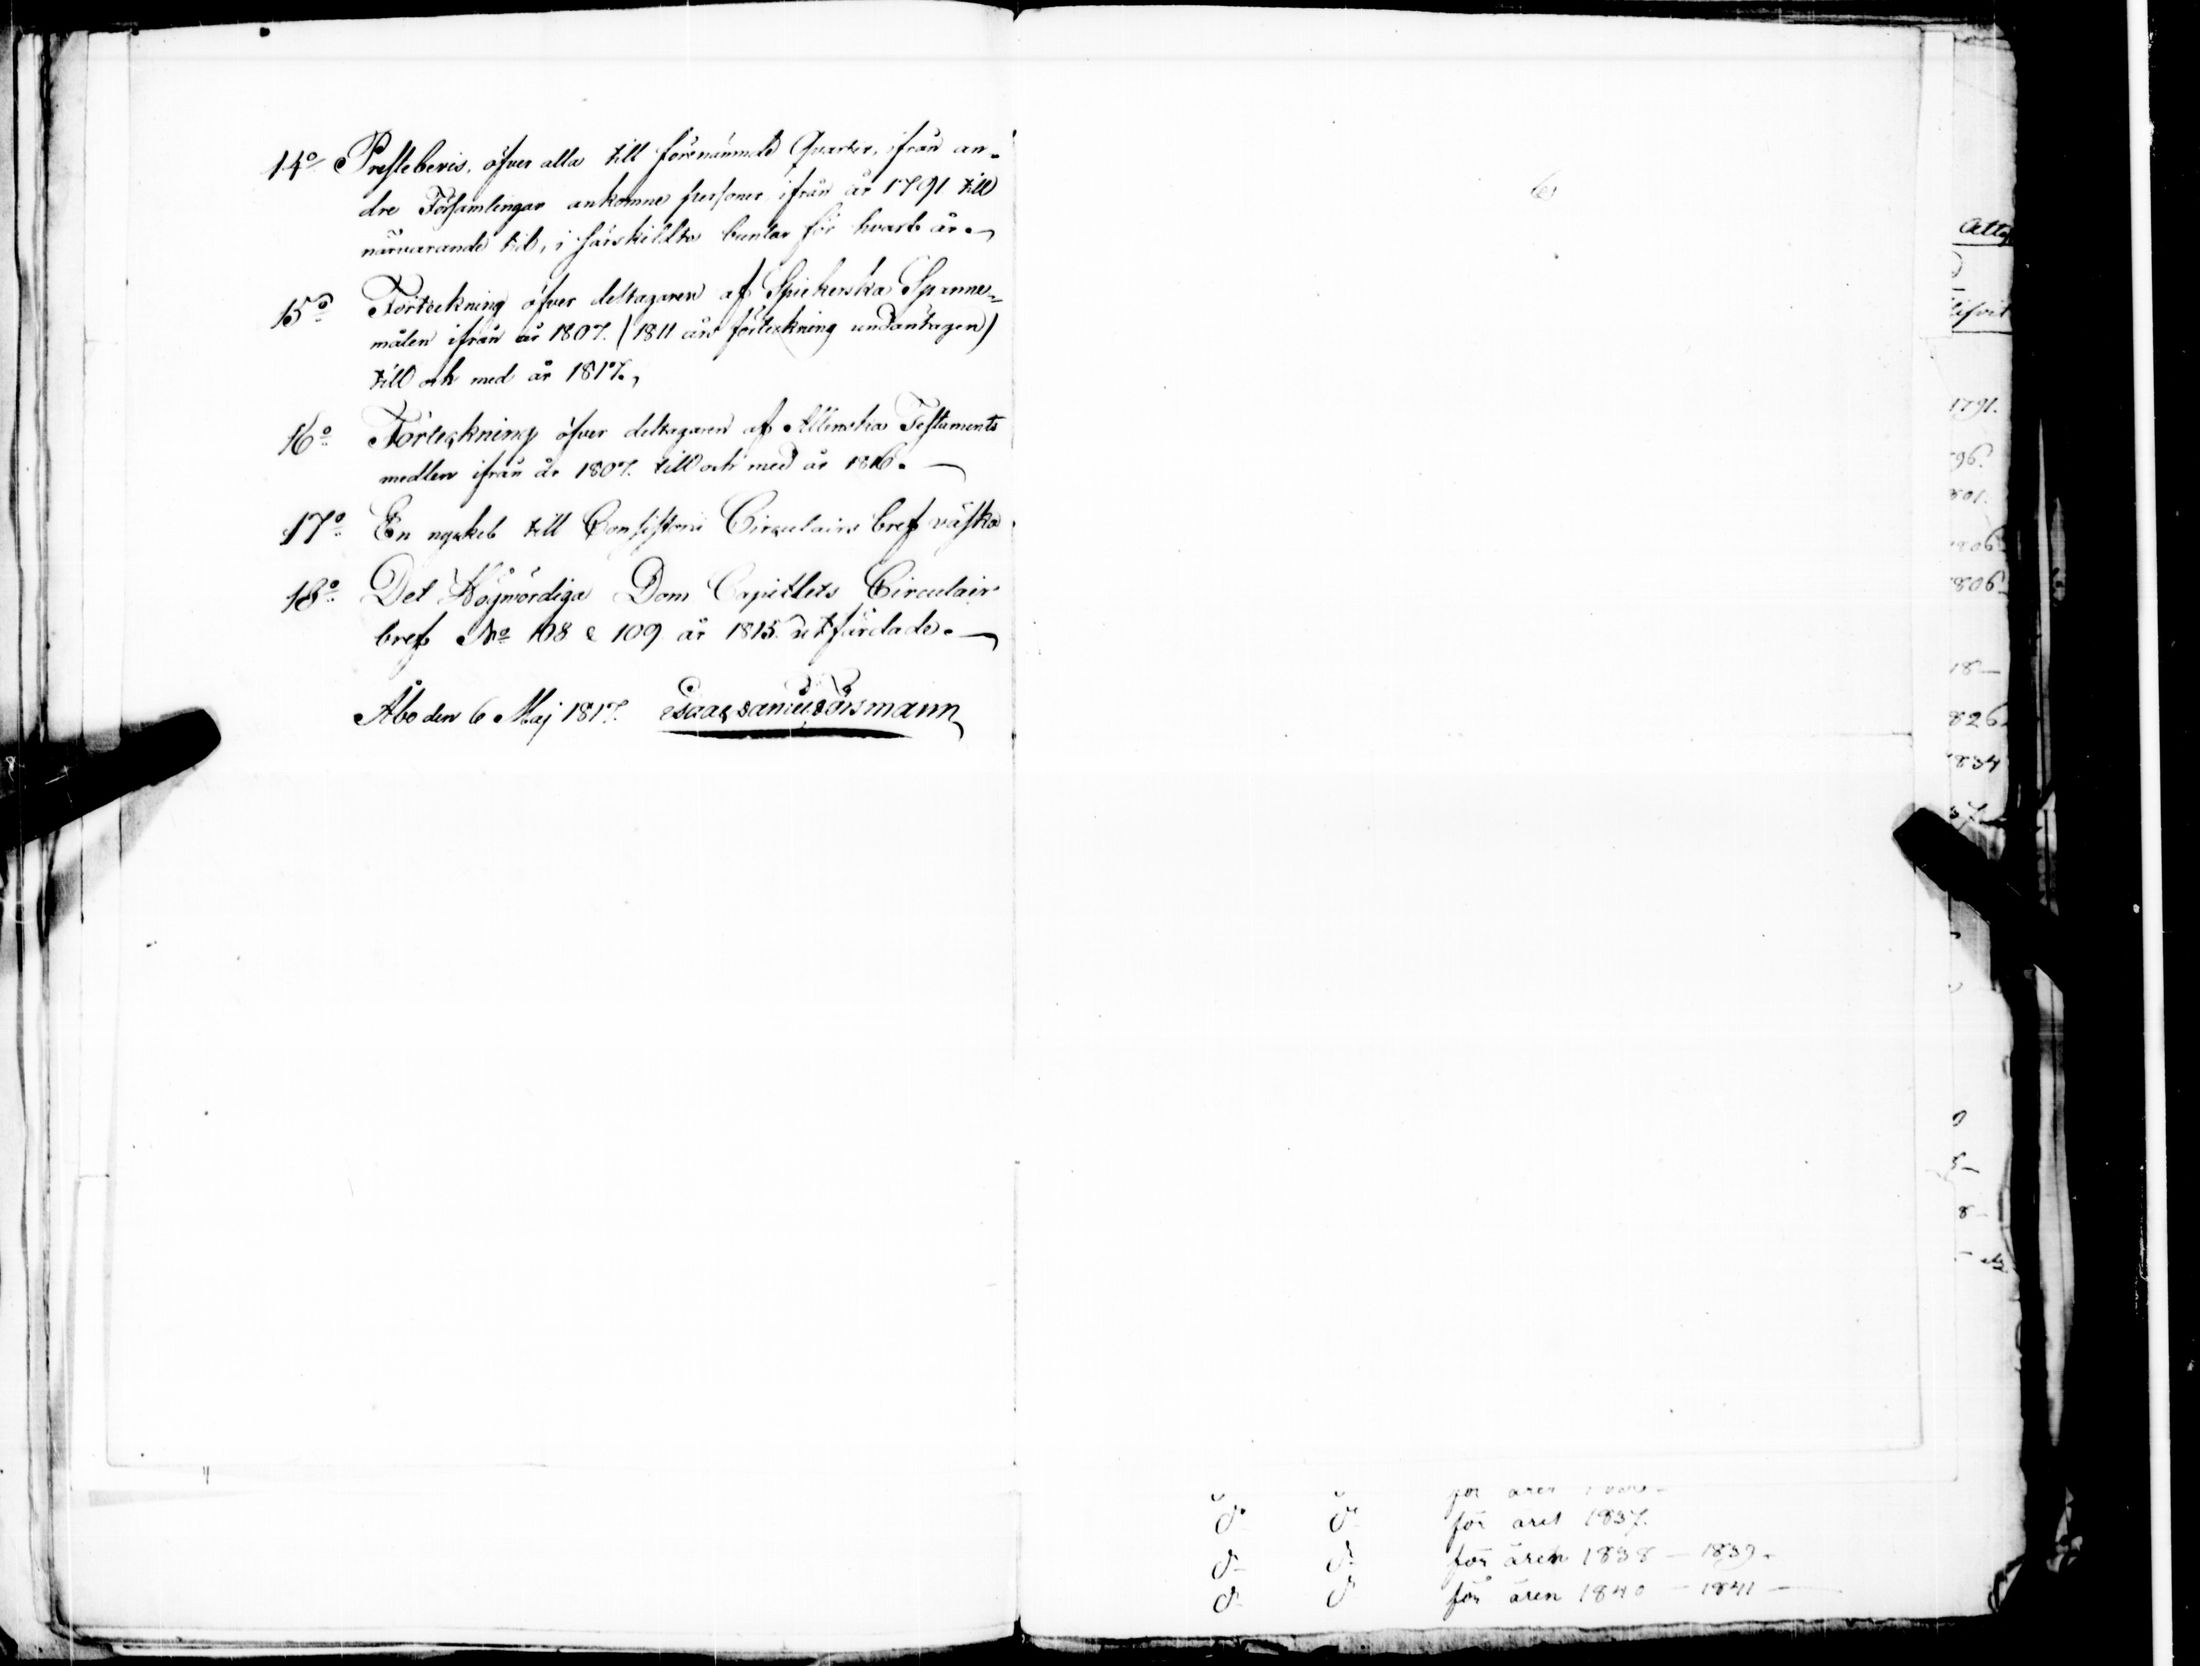 14o Prestebevis, öfver alla till förenämnde Quarter, ifrån an-
dre Församlingar ankomne personer, ifrån år 1791 till
närvarande tid, i särskildta buntar för hvart år.
15o Förtekning öfver deltagaren af Spiekerska Spanne-
målen ifrån år 1807. (1811 års förtekning undantagen)
till och med år 1817.
16o Förtekning öfver deltagaren af Allenska Testaments
medlen ifrån år 1807. till och med år 1816.
17o En nyckel till Consistorii Circulairs bref väska
18o Det Högvördiga Dom Capitlets Circulair
bref No 108 & 109 år 1815. utfärdade.
Åbo den 6 Maj 1817. Isaac Daniel Törsmann
6
Attes
1791.
96.
801.
1806
806
18
826
1834
37
do do för året 1837.
do do för åren 1838 - 1839.
do do för åren 1840 - 1841